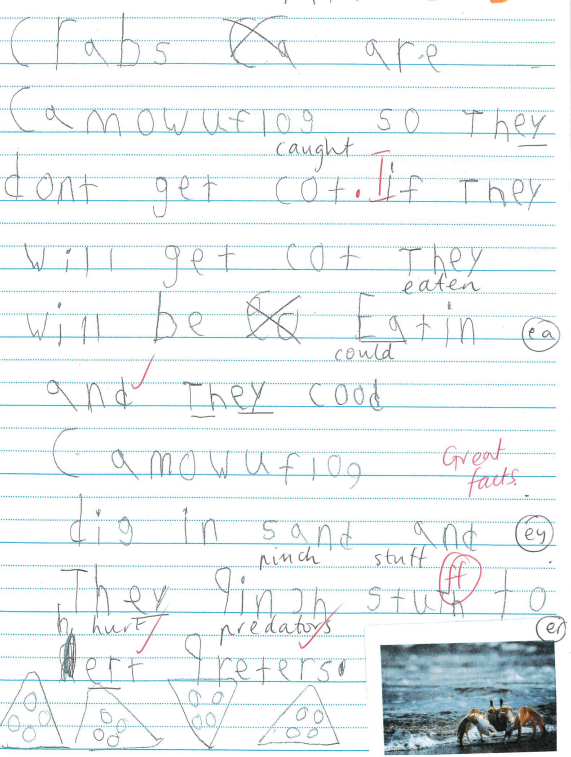 Crabs Ca are
Camowuflog so They
caught
dont get cot. If They
will get cot They
eaten
will be Co Eatin ea
could
and They cood
Camowuflog
Great
facts.
dig in sand and ey
pinch stuff
They Pinch stuff to
hurt predators er
hert Preters.